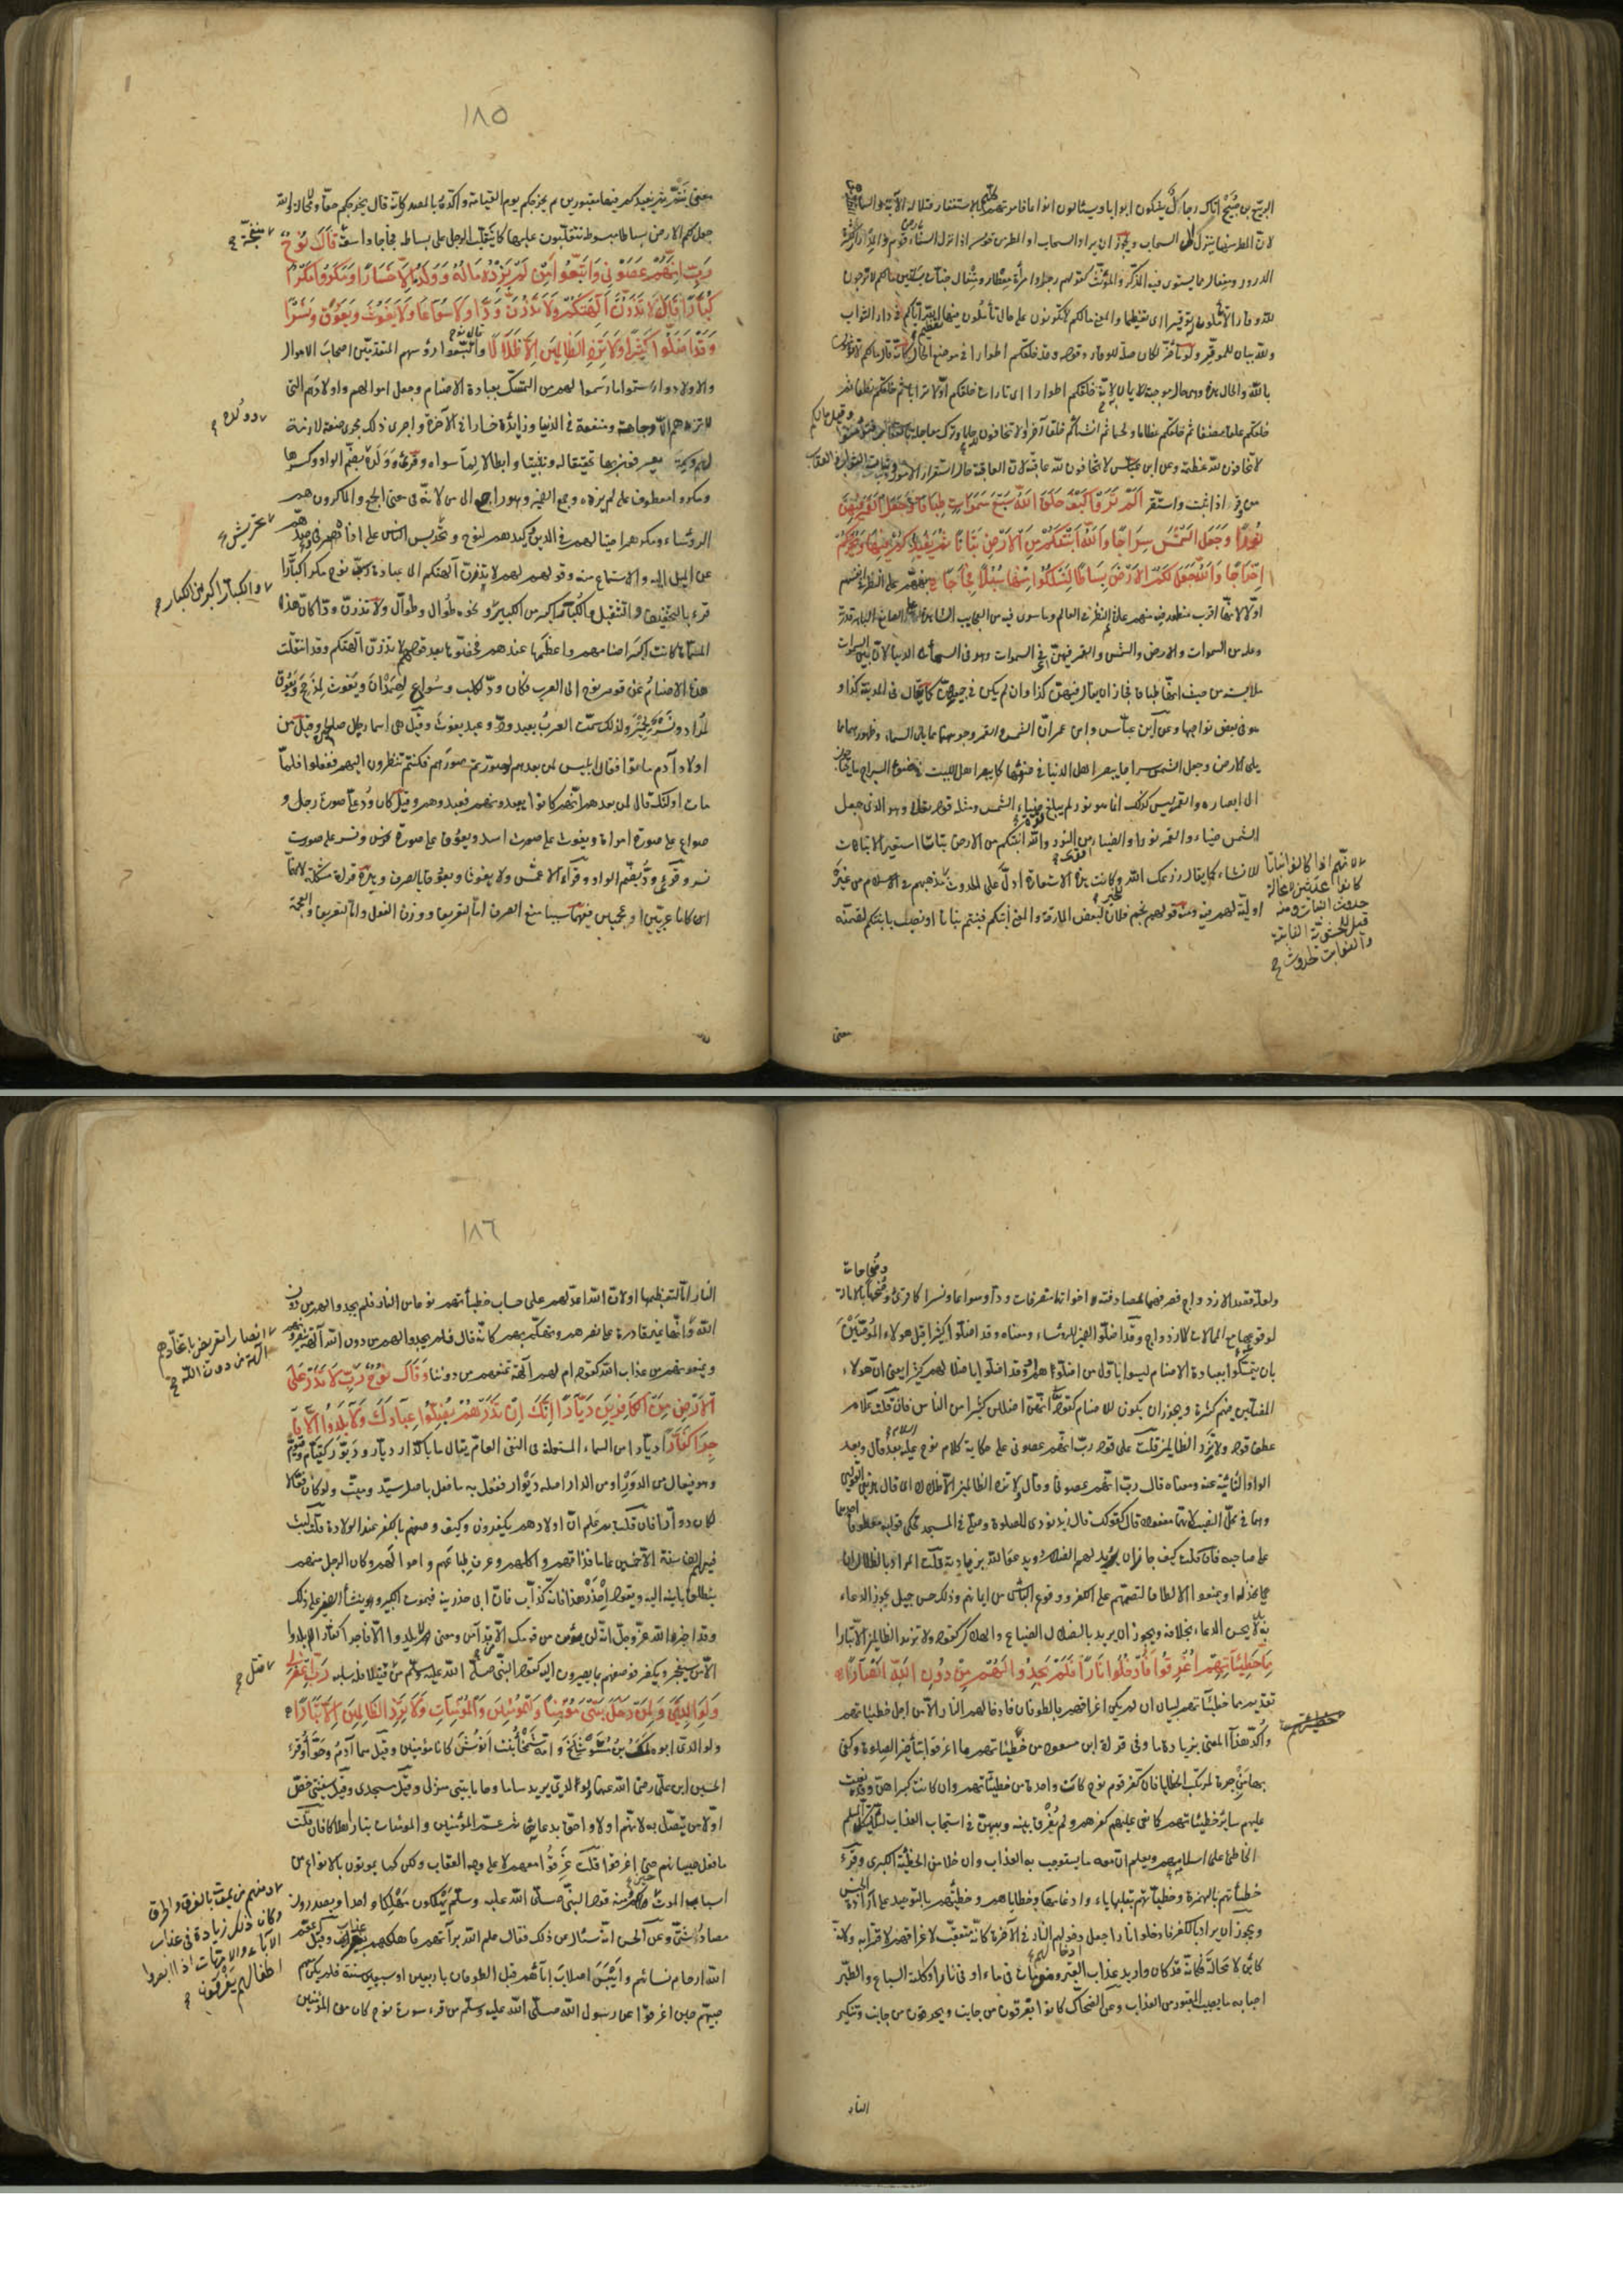 الربيع بن صبيح اتاك رجال يشكون ابوابا ويسئالون انواعا فامرتهم كلهم بالاستغفار فتلا له الآية والسماء المظلة
لان المطر منها ينزل الى السحاب ويجوز ان يراد السحاب او المطر من قوله اذا نزل السماء بارض قوم والمدرار الكثير
الدرور ومفعال مما يستوى فيه المذكر والمؤنث كقولهم رجل وامرأة معطار ومتفال جنات بساتين مالكم لا ترجون
لله وقارا لا تأملون له توقيرا اى تعظيما والمعنى مالكم لا تكونون على حال تأملون فيها تعظيم الله اياكم فى دار الثواب
ولله بيان للموقر ولو تأخر لكان صلة للوقار وقوله وقد خلقكم اطوارا فى موضع الحال كانه قال مالكم لا تؤمنون
بالله والحال هذه وهى حال موجبة للايمان به لانه خلقكم اطوارا اى تارات خلقكم اولا ترابا ثم خلقكم نطفا ثم
خلقكم علقا ثم خلقكم مضغا ثم خلقكم عظاما ولحما ثم انشأكم خلقا آخر اولا تخافون لله حلما وترك معاجلة بالعقاب فتؤمنوا وقيل مالكم
لا تخافون لله عظمة وعن ابن عباس لا تخافون لله عاقبة لان العاقبة حال استقرار الامور وثبات الثواب والعقاب
من وقر اذا ثبت واستقر الم تروا كيف خلق الله سبع سموات طباقا وجعل القمر فيهن
نورا وجعل الشمس سراجا والله انبتكم من الارض نباتا ثم يعيدكم فيها ويخرجكم
اخراجا والله جعل لكم الارض بساطا لتسلكوا منها سبلا فجاجا نبههم على النظر فى انفسهم
اولا لانها اقرب منظور فيه منهم ثم على النظر فى العالم وما سوى فيه من العجايب الشاهدة على الصانع الباهر قدرته
وعلمه من السموات والارض والشمس والقمر فيهن فى السموات وهو فى السماء الدنيا لان بين السموات
ملابسة من حيث انها طباق فجاز ان يقال فيهن كذا وان لم يكن فى جميعهن كما يقال فى المدينة كذا وهو
هو فى بعض نواحيها وعن ابن عباس وابن عمر ان الشمس والقمر وجوههما مما يلى السماء وظهورهما مما
يلى الارض وجعل الشمس سراجا يبصر اهل الدنيا فى ضوئها كما يبصر اهل البيت فى ضوء السراج ما يحتاجون
الى ابصاره والقمر ليس كذلك انما هو نور لم يبلغ قوة ضياء الشمس ومثله قوله تعالى وهو الذى جعل
الشمس ضياء والقمر نورا والضياء اقوى من النور والله انبتكم من الارض نباتا استعير الانبات
للانشاء كما يقال زرعك الله وكانت هذه الاستعارة ادل على الحدوث لانهم اذا كانوا نباتا
كانوا محدثين لا محالة
حدوث النبات ومنه
قيل للحشوية النابتة
والنوابت لحدوث
مذهبهم فى الاسلام من غير
اولية لهم فيه ومنه قولهم نجم فلان لبعض المارقة والمعنى انبتكم فنبتم نباتا او نصب بانبتكم لتضمنه
معنى
١٨٥
معنى نبتم ثم يعيدكم فيها مقبورين ثم يخرجكم يوم القيامة واكده بالمصدر كانه قال يخرجكم حقا ولا محالة والله
جعل لكم الارض بساطا مبسوطة تتقلبون عليها كما يتقلب الرجل على بساطه فجاجا واسعة منفجة قال نوح
رب انهم عصونى واتبعوا من لم يزده ماله وولده الا خسارا ومكروا مكرا
كبارا وقالوا لا تذرن آلهتكم ولا تذرن ودا ولا سواعا ولا يغوث ويعوق ونسرا
وقد اضلوا كثيرا ولا تزد الظالمين الا ضلالا واتبعوا رؤسهم المتقدمين اصحاب الاموال
والاولاد وارتسموا ما رسموا لهم من التمسك بعبادة الاصنام وجعل اموالهم واولادهم التى
لم تزدهم الا وجاهة ومنفعة فى الدنيا زايدة خسارا فى الآخرة واجرى ذلك مجرى صفة لازمة
لهم وسمة يعرفون بها تحقيقا له وتثبيتا وابطالا لما سواه وقرئ وولده بضم الواو وكسرها
ومكروا معطوف على لم يزده وجمع الضمير وهو راجع الى من لانه فى معنى الجمع والماكرون هم
الرؤساء ومكرهم احتيالهم فى الدين وكيدهم لنوح وتحريش الناس على اذاه وصدهم
عن الميل اليه والاستماع منه وقولهم لهم لا تذرن آلهتكم الى عبادة رب نوح مكرا كبارا
قرئ بالتخفيف والتثقيل والكبار اكبر من الكبير ونحوه طوال وطوال ولا تذرن ودا كأن هذه
والكبار اكبر من الكبار
المسميات كانت اكبر اصنامهم واعظمها عندهم فخصوها بعد قولهم لا تذرن آلهتكم وقد انتقلت
هذه الاصنام عن قوم نوح الى العرب فكان ود لكلب وسواع لهمدان ويغوث لمذحج ويعوق
لمراد ونسر لحمير ولذلك سمت العرب بعبد ود وعبد يغوث وقيل هى اسماء رجال صالحين وقيل من
اولاد آدم ماتوا فقال ابليس لمن بعدهم لو صورتم صورهم فكنتم تنظرون اليهم ففعلوا فلما
مات اولئك قال لمن بعدهم انهم كانوا يعبدونهم فعبدوهم وقيل كان ود على صورة رجل و
سواع على صورة امراة ويغوث على صورة اسد ويعوق على صورة فرس ونسر على صورة
نسر وقرئ ودا بضم الواو وقرأ الاعمش ولا يغوثا ويعوقا بالصرف وهذه قراءة مشكلة لانهما
ان كانا عربيين او عجميين ففيهما سببا منع الصرف اما التعريف ووزن الفعل واما التعريف والعجمة
ولعله قصد الازدواج فصرفهما لمصادفته اخواتهما متصرفات ودا وسواعا ونسرا كما قرئ وضحاها بالامالة
لوقوعها مع الممالات للازدواج وقد اضلوا الضمير للرؤساء ومعناه وقد اضلوا كثيرا قبل هؤلاء الموصين
بان يتمسكوا بعبادة الاصنام ليسوا باول من اضلوهم او وقد اضلوا باضلالهم كثيرا يعنى ان هؤلاء
المضلين فيهم كثرة ويجوز ان يكون للاصنام كقوله انهن اضللن كثيرا من الناس فان قلت علام
عطف قوله ولا تزد الظالمين قلت على قوله رب انهم عصونى على حكاية كلام نوح عليه السلام بعد قال وبعد
الواو النائبة عنه ومعناه قال رب انهم عصونى وقال لا تزد الظالمين الا ضلالا اى قال هذين القولين
وهما فى محل النصب لانهما مفعولا قال كقولك قال زيد نودى للصلوة وصل فى المسجد تحكى قوليه معطوفا احدهما
على صاحبه فان قلت كيف جاز ان يريد لهم الضلال ويدعو الله بزيادته قلت المراد بالضلال ان
يخذلوا ويمنعوا الالطاف لتصميمهم على الكفر ووقوع اليأس من ايمانهم وذلك حسن جميل يجوز الدعاء
به بل لا يحسن الدعاء بخلافه ويجوز ان يريد بالضلال الضياع والهلاك كقوله ولا تزد الظالمين الا تبارا
مما خطيئاتهم اغرقوا فادخلوا نارا فلم يجدوا لهم من دون الله انصارا
تقديم مما خطيئاتهم لبيان ان لم يكن اغراقهم بالطوفان فادخالهم النار الا من اجل خطيئاتهم
واكد هذا المعنى بزيادة ما وفى قراءة ابن مسعود من خطيئاتهم ما اغرقوا بتأخير الصلة وكفى
بها مزجرة لمرتكب الخطايا فان كفر قوم نوح كانت واحدة من خطيئاتهم وان كانت كبراهن وقد نعيت
عليهم ساير خطيئاتهم كما نعى عليهم كفرهم ولم يفرق بينه وبينهن فى استيجاب العذاب لئلا يتكل المسلم
الخاطئ على اسلامه ويعلم ان معه ما يستوجب به العذاب وان خلا من الخطيئة الكبرى وقرئ
خطيئاتهم بالهمزة وخطياتهم بقلبها ياء وادغامها وخطاياهم وخطيئتهم بالتوحيد على ارادة الجنس
ويجوز ان يراد الكفر فادخلوا نارا جعل دخولهم النار فى الآخرة كانه متعقب لاغراقهم لاقترابه ولانه
كائن لا محالة فكانه قد كان او اريد عذاب القبر ومن مات فى ماء او فى نار او اكلته السباع والطير
اصابه ما يصيب المقبور من العذاب وعن الضحاك كانوا يغرقون من جانب ويحرقون من جانب وتنكير
النار
١٨٦
النار اما لتعظيمها او لان الله اعد لهم على حسب خطيئاتهم نوعا من النار فلم يجدوا لهم من دون
الله وانها غير قادرة على نصرهم وتهكم بهم كانه قال فلم يجدوا لهم من دون الله آلهة ينصرونهم
انصارا تعريض باتخاذهم
آلهة من دون الله
ويمنعونهم من عذاب الله كقوله ام لهم آلهة تمنعهم من دوننا وقال نوح رب لا تذر على
الارض من الكافرين ديارا انك ان تذرهم يضلوا عبادك ولا يلدوا الا فا
جرا كفارا ديارا من الاسماء المستعملة فى النفى العام يقال ما بالدار ديار وديور كقيام وقيوم
وهو فيعال من الدور او من الدار اصله ديوار ففعل به ما فعل باصل سيد وميت ولو كان فعالا
لكان دوارا فان قلت بم علم ان اولادهم يكفرون وكيف وصفهم بالكفر عند الولادة قلت لبث
فيهم الف سنة الا خمسين عاما فذاقهم واكلهم وعرف طباعهم واحوالهم وكان الرجل منهم
ينطلق بابنه اليه ويقول احذر هذا فانه كذاب فان ابى حذرنيه فيموت الكبير وينشأ الصغير على ذلك
وقد اخبره الله عز وجل انه لن يؤمن من قومك الا من قد آمن ومعنى لا يلدوا الا فاجرا كفارا لا يلدوا
الا من سيفجر ويكفر فوصفهم بما يصيرون اليه كقول النبى صلى الله عليه وسلم من قتل قتيلا فله سلبه رب اغفر لى
ولوالدى ولمن دخل بيتى مؤمنا وللمؤمنين والمؤمنات ولا تزد الظالمين الا تبارا
ولوالدى ابوه لمك بن متوشلخ وامه شمخا بنت انوش كانا مؤمنين وقيل هما آدم وحوا وقرئ
الحسين ابن على رضى الله عنهما ولولدى يريد ساما وحاما بيتى منزلى وقيل مسجدى وقيل سفينتى خص
اولا من يتصل به لانهم اولى واحق بدعائه ثم عم المؤمنين والمؤمنات تبارا هلاكا فان قلت
ما فعل صبيانهم حين اغرقوا قلت غرقوا معهم لا على وجه العقاب ولكن كما يموتون بالانواع من
اسباب الموت
وكم منهم من يموت بالغرق والحرق
وكان ذلك زيادة فى عذاب
الآباء والامهات اذا ابصروا
اطفالهم يغرقون
ومنه قول النبى صلى الله عليه وسلم يهلكون مهلكا واحدا ويصدرون
مصادر شتى وعن الحسن انه سئل عن ذلك فقال علم الله براءتهم فاهلكهم بغير عذاب وقيل اعقم
الله ارحام نسائهم وايبس اصلاب آبائهم قبل الطوفان باربعين او سبعين سنة فلم يكن معهم
صبى حين اغرقوا عن رسول الله صلى الله عليه وسلم من قرء سورة نوح كان من المؤمنين